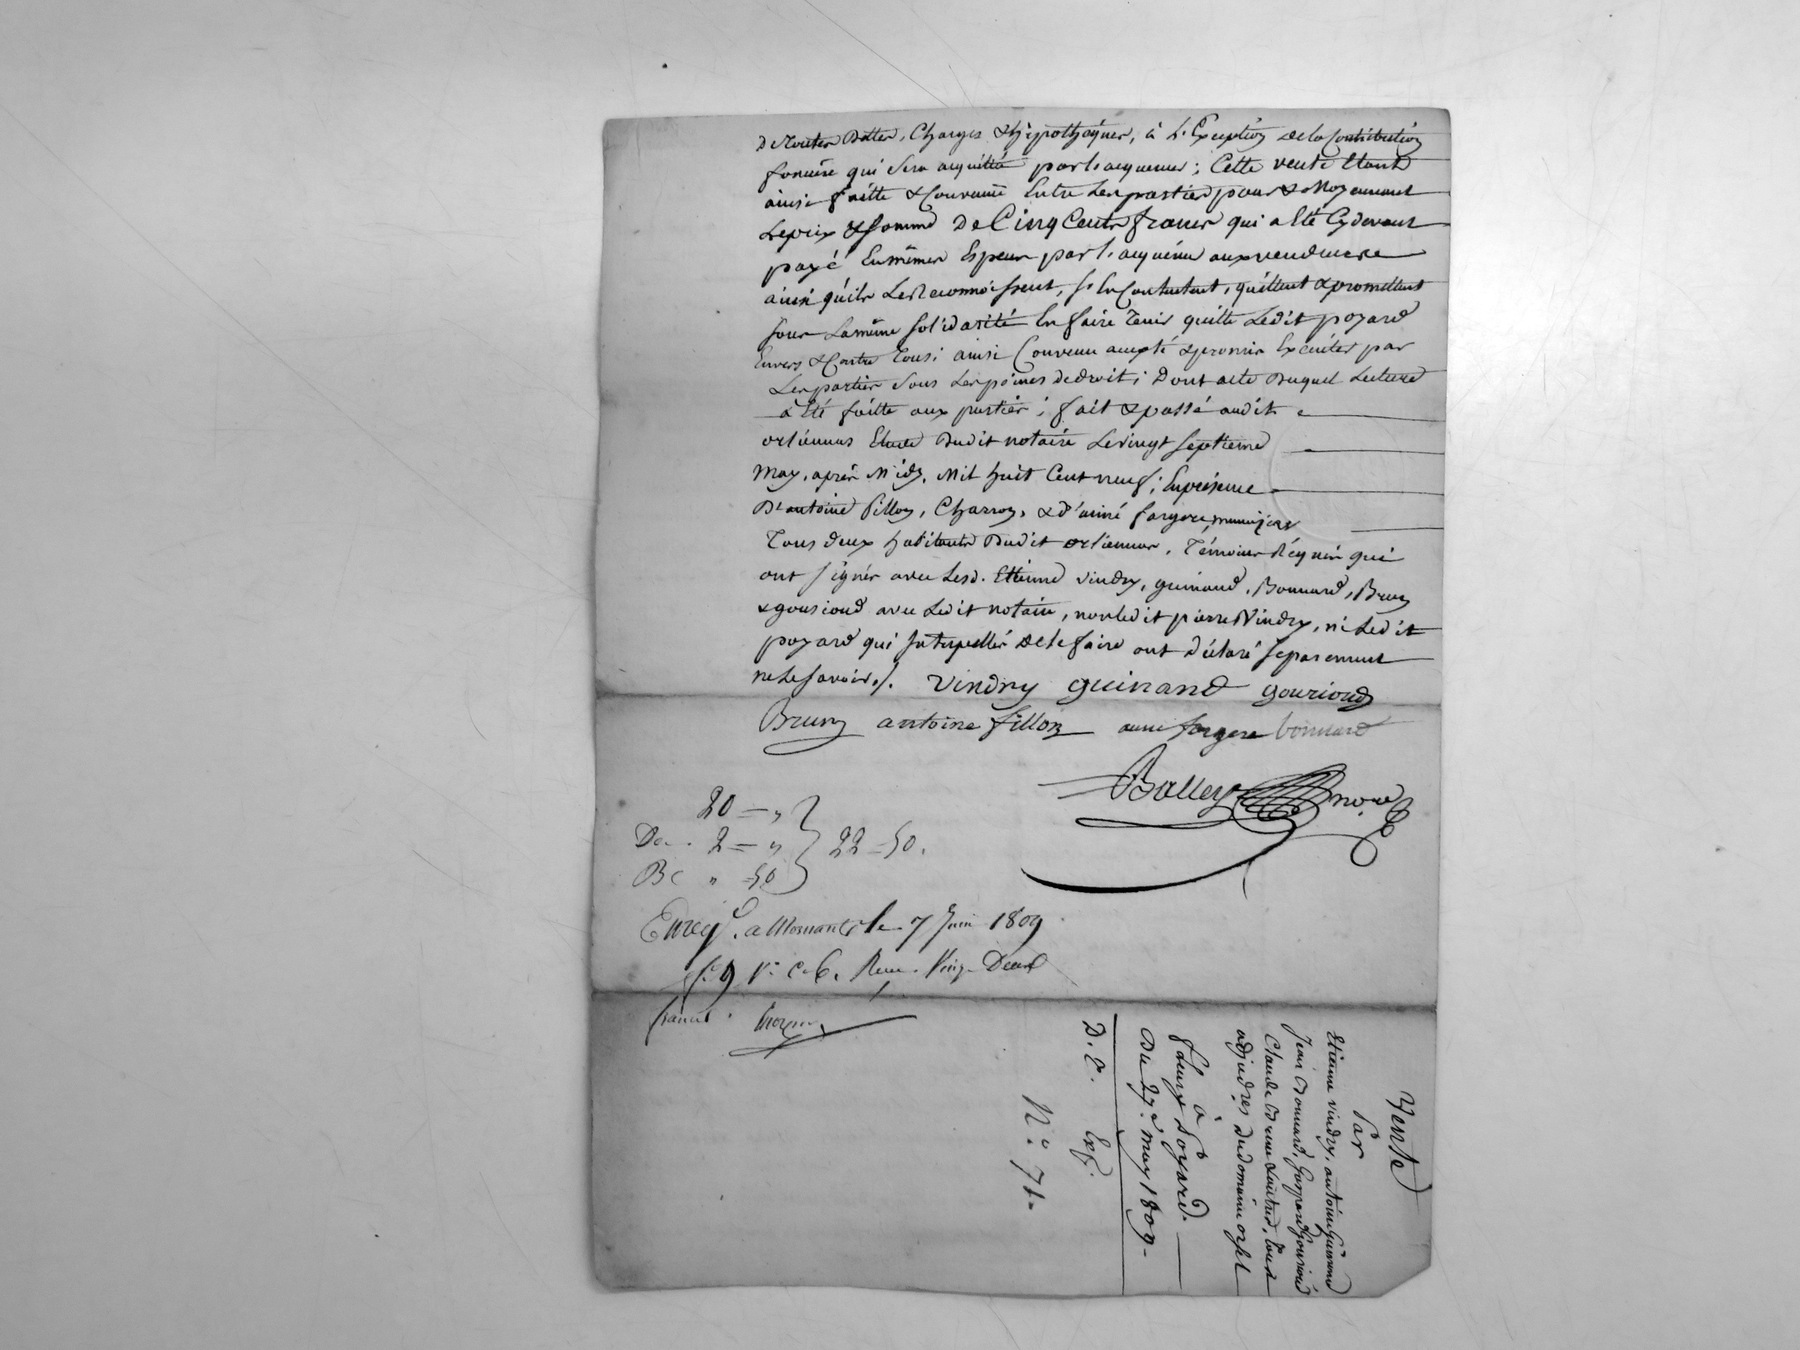 De Toutes Dettes, Charges & hipothèques, à L'Exception de la Contribution
fonciere qui sera acquittée par l'acquereur; Cette vente Etant
ainsi faitte & Convenue Entre Les parties pour & Moyennant
Le prix & Somme De Cinq Cents francs qui a Eté Cydevant
payé En par l'acquéreur aux vendeurs
ainsi qu'ils Le Reconnoissent, s'En Contentent, quittent & promettent
sous La même solidarité En faire Tenir quitte Ledit poyard
Envers & Contre Tous; ainsi Convenu accepté & promis Executer par
Les parties sous Les peines de droit; Dont acte Duquel Lecture
a Eté faitte aux parties; fait & passé audit
orliennas Etude Dudit notaire Le vingt septieme
May, après Midy, Mil huit Cent neuf; En présence
D'antoine fillon, Charron, & d'aimé fargere, menuizier
Tous deux habitants Dudit orliennas, Témoins Réquis qui
ont signés avec Lesd. Etienne vindry, guinand, Bonnard, Brun
& gourioud avec Ledit notaire, non Ledit pierre Vindry, ni Ledit
poyard qui Interpellés de le faire ont déclaré séparement
ne Le savoir ./. Vindry guinand gourioud
Brun antoine fillon aimé fargere bonnard
Balley nore
20 = „
De . 2 = „ } 22 = 50.
Bc „ = 50
Enregé. a Mornant le 7 Juin 1809
fo. 9 Vo C. 6. Recu Vingt Deux
francs.
Vente
Par
Etienne vindry, antoine Guinand
Jean Bonnard, Gaspard Gourioud
Claude Brun & autres, tous
du domaine orsel
à
fleury Poyard.
Du 27e. may 1809.
D. E. Exp.
No. 71.